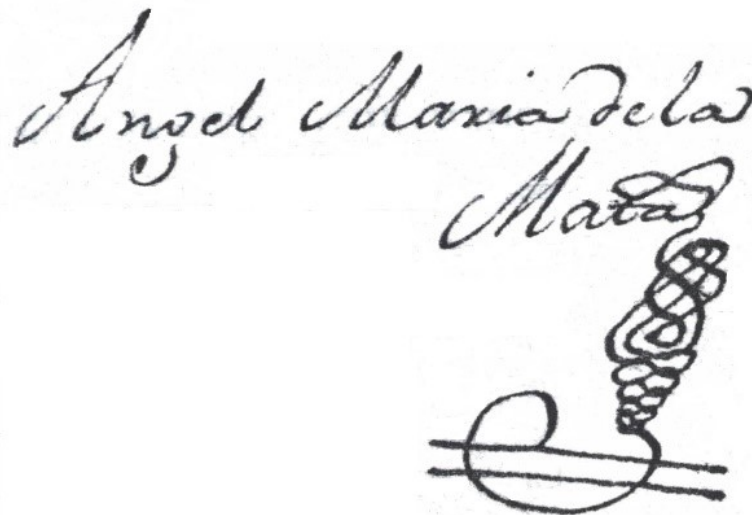 Angel Maria de la
Mata